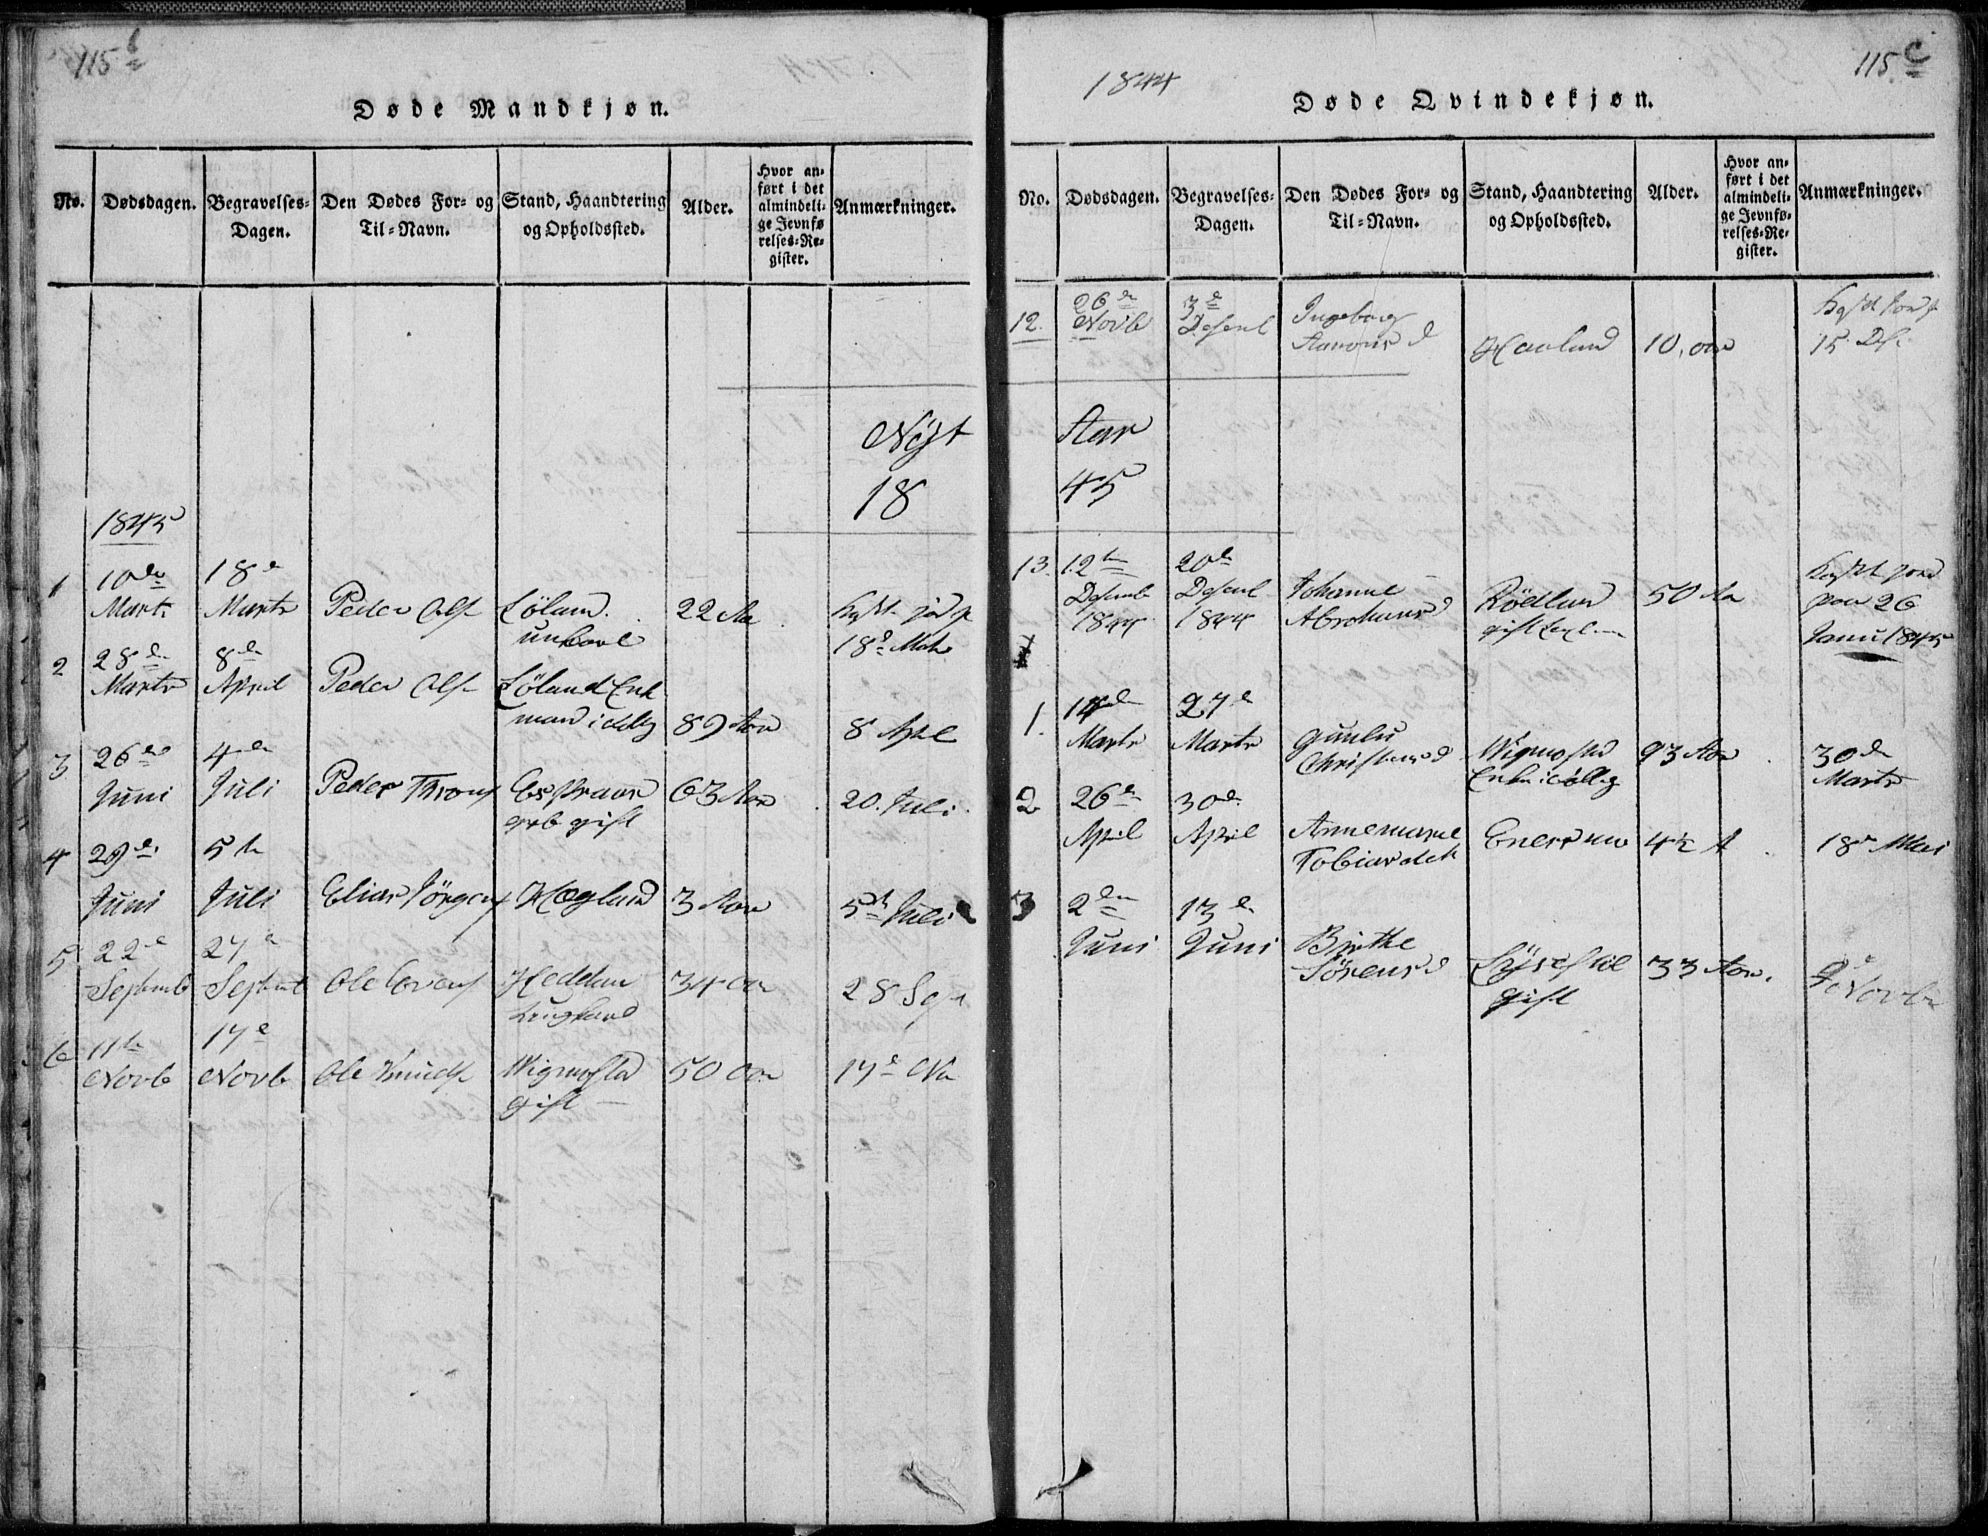 115 b
Døde Mandkjøn.
No.
Dødsdagen.
Begravelses-
Dagen.
Den Dødes For- og
Til-Navn.
Stand, Haandtering
og Opholdssted.
Alder.
Hvor an-
ført i det
almindeli-
ge Jevnfø
relses-Re-
gister.
Anmærkninger.
Nyt
18
1845
1
10de
Marts
18de
Marts
Peder Ols
Lölan
unkarl
22 Aa
18de Mar
2
28de
Marts
8de
April
Peder Ols
Löland Enk
mand
89 Aar
8 Apl
3
26de
Juni
4de
Juli
Peder Throns
gift
63 Aar
20 Juli
4
29de
Juni
5te
Juli
Elias Jörgens
Hægland
3 Aar
5te Juli
5
22de
Septemb
27de
Septemb
Ole
Heddan
34 aar
28 Sep
6
11te
Novb
17de
Novb
Ole Knuds
Wigmostad
gift
50 aar
17de No
1844
115 c
Døde Qvindekjøn.
No.
Dødsdagen.
Begravelses-
Dagen.
Den Dødes For- og
Til-Navn.
Stand, Haandtering
og Opholdssted.
Alder.
Hvor an-
ført i det
almindeli-
ge Jevnfø-
relses-Re-
gister.
Anmærkninger.
12.
26de
Novb
3de
Desemb
Ingeborg
Haaland
10 aar
15 Des
Aar
45
13.
12te
Desemb
1844
20de
Desemb
1844
Johanne
Abrahamsd
Rödlan
gift
50 Aa
26
Janu 1845
1.
14de
Marts
27de
Marts
Gunlu
Christensd
Wigmostad
Enke
93 Aar
30de
Marts
2
26de
April
30de
April
Annemarie
Tobiasdatt
4½ A
18de Mai
3
2den
Juni
13de
Juni
Birthe
Sörensd
gift
33 Aar.
Novbr